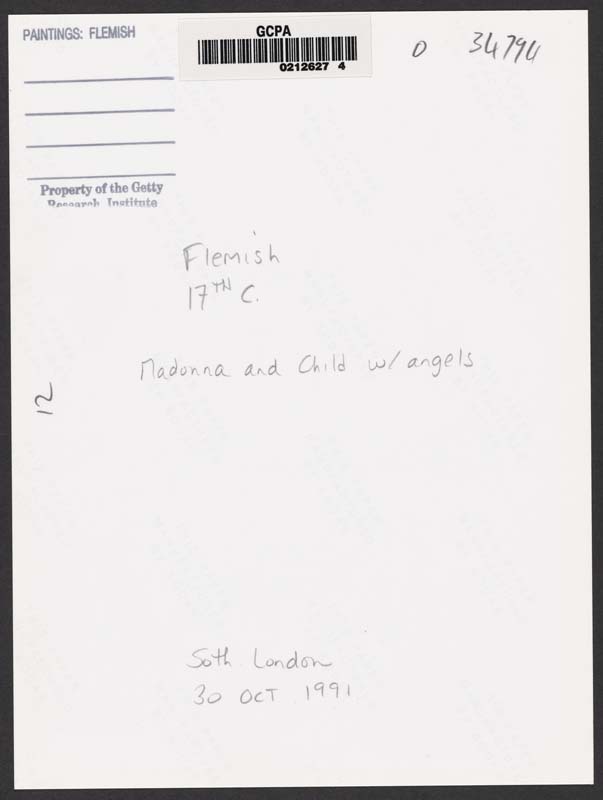 PAINTINGS: FLEMISH
GCPA
0212627 4
0 34794
Property of the Getty
Research Institute
Flemish
17TH C.
Madonna and Child w/ angels
12
Soth London
30 OCT 1991